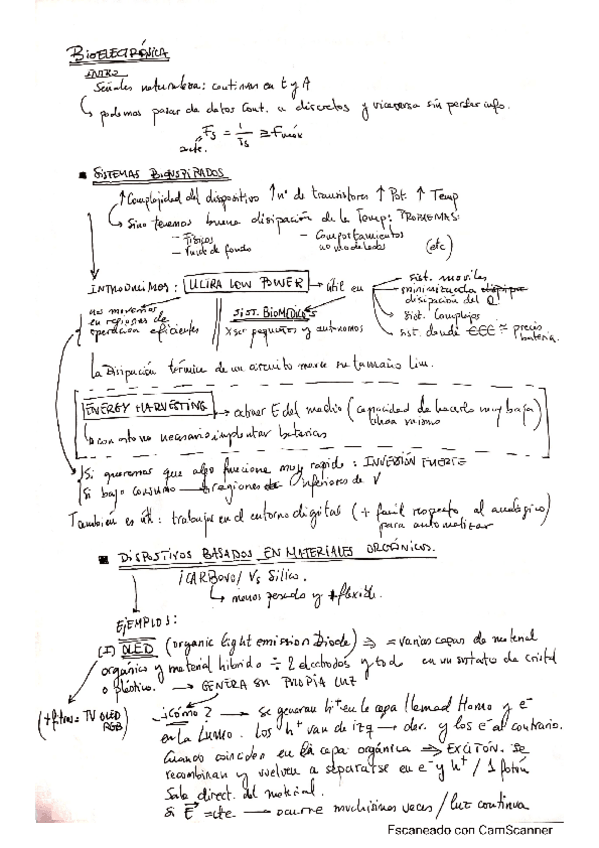 BIOELECTRÓNICA
INTRO
Señales naturaleza: continuas en t y A
↳ podemos pasar de datos cont. a discretos y viceversa sin perder info.
Fs = 1/Ts ≥ Fmáx
▪ SISTEMAS BIOINSPIRADOS
↑Complejidad del dispositivo ↑nº de transistores ↑ Pot. ↑ Temp
↳ Si no tenemos buena disipación de la Temp: PROBLEMAS:
– Físicos – Comportamientos
no modelados (etc)
– Ruido de fondo
INTRODUCIMOS: ULTRA LOW POWER → útil en
sist. moviles
disipación del Q
sist. complejos
sist. donde €€€ ≈ precio
batería.
nos movemos
en regiones de
operación eficientes
SIST. BIOMÉDICOS
x ser pequeños y autónomos
La Disipación térmica de un circuito marca su tamaño lim.
ENERGY HARVESTING → extraer E del medio (capacidad de hacerlo muy baja)
ahora mismo
↳ con esto no necesario implantar baterías
Si queremos que algo funcione muy rápido: INVERSIÓN FUERTE
Si bajo consumo → regiones inferiores de V
También es útil: trabajar en el entorno digital (+ facil respecto al analógico)
para automatizar
▪ DISPOSTIVOS BASADOS EN MATERIALES ORGÁNICOS.
/CARBONO/ Vs Silico.
↳ menos pesado y + flexible.
EJEMPLOS:
(I) OLED (organic light emission Diode) ⇒ = varias capas de material
orgánico y material híbrido ÷ 2 electrodos y todo en un sustrato de cristal
o plástico. → GENERA SU PROPIA LUZ
(+ filtros = TV OLED
RGB)
¿Cómo? → Se generan h⁺ en la capa llamad Homo y e⁻
en la Lumo. Los h⁺ van de izq → der. y los e⁻ al contrario.
Cuando coinciden en la capa orgánica ⇒ EXCITÓN. Se
recombinan y vuelven a separarse en e⁻ y h⁺ / 1 fotón
sale direct. del material.
Si E = cte. → ocurre muchísimas veces / luz continua
Escaneado con CamScanner